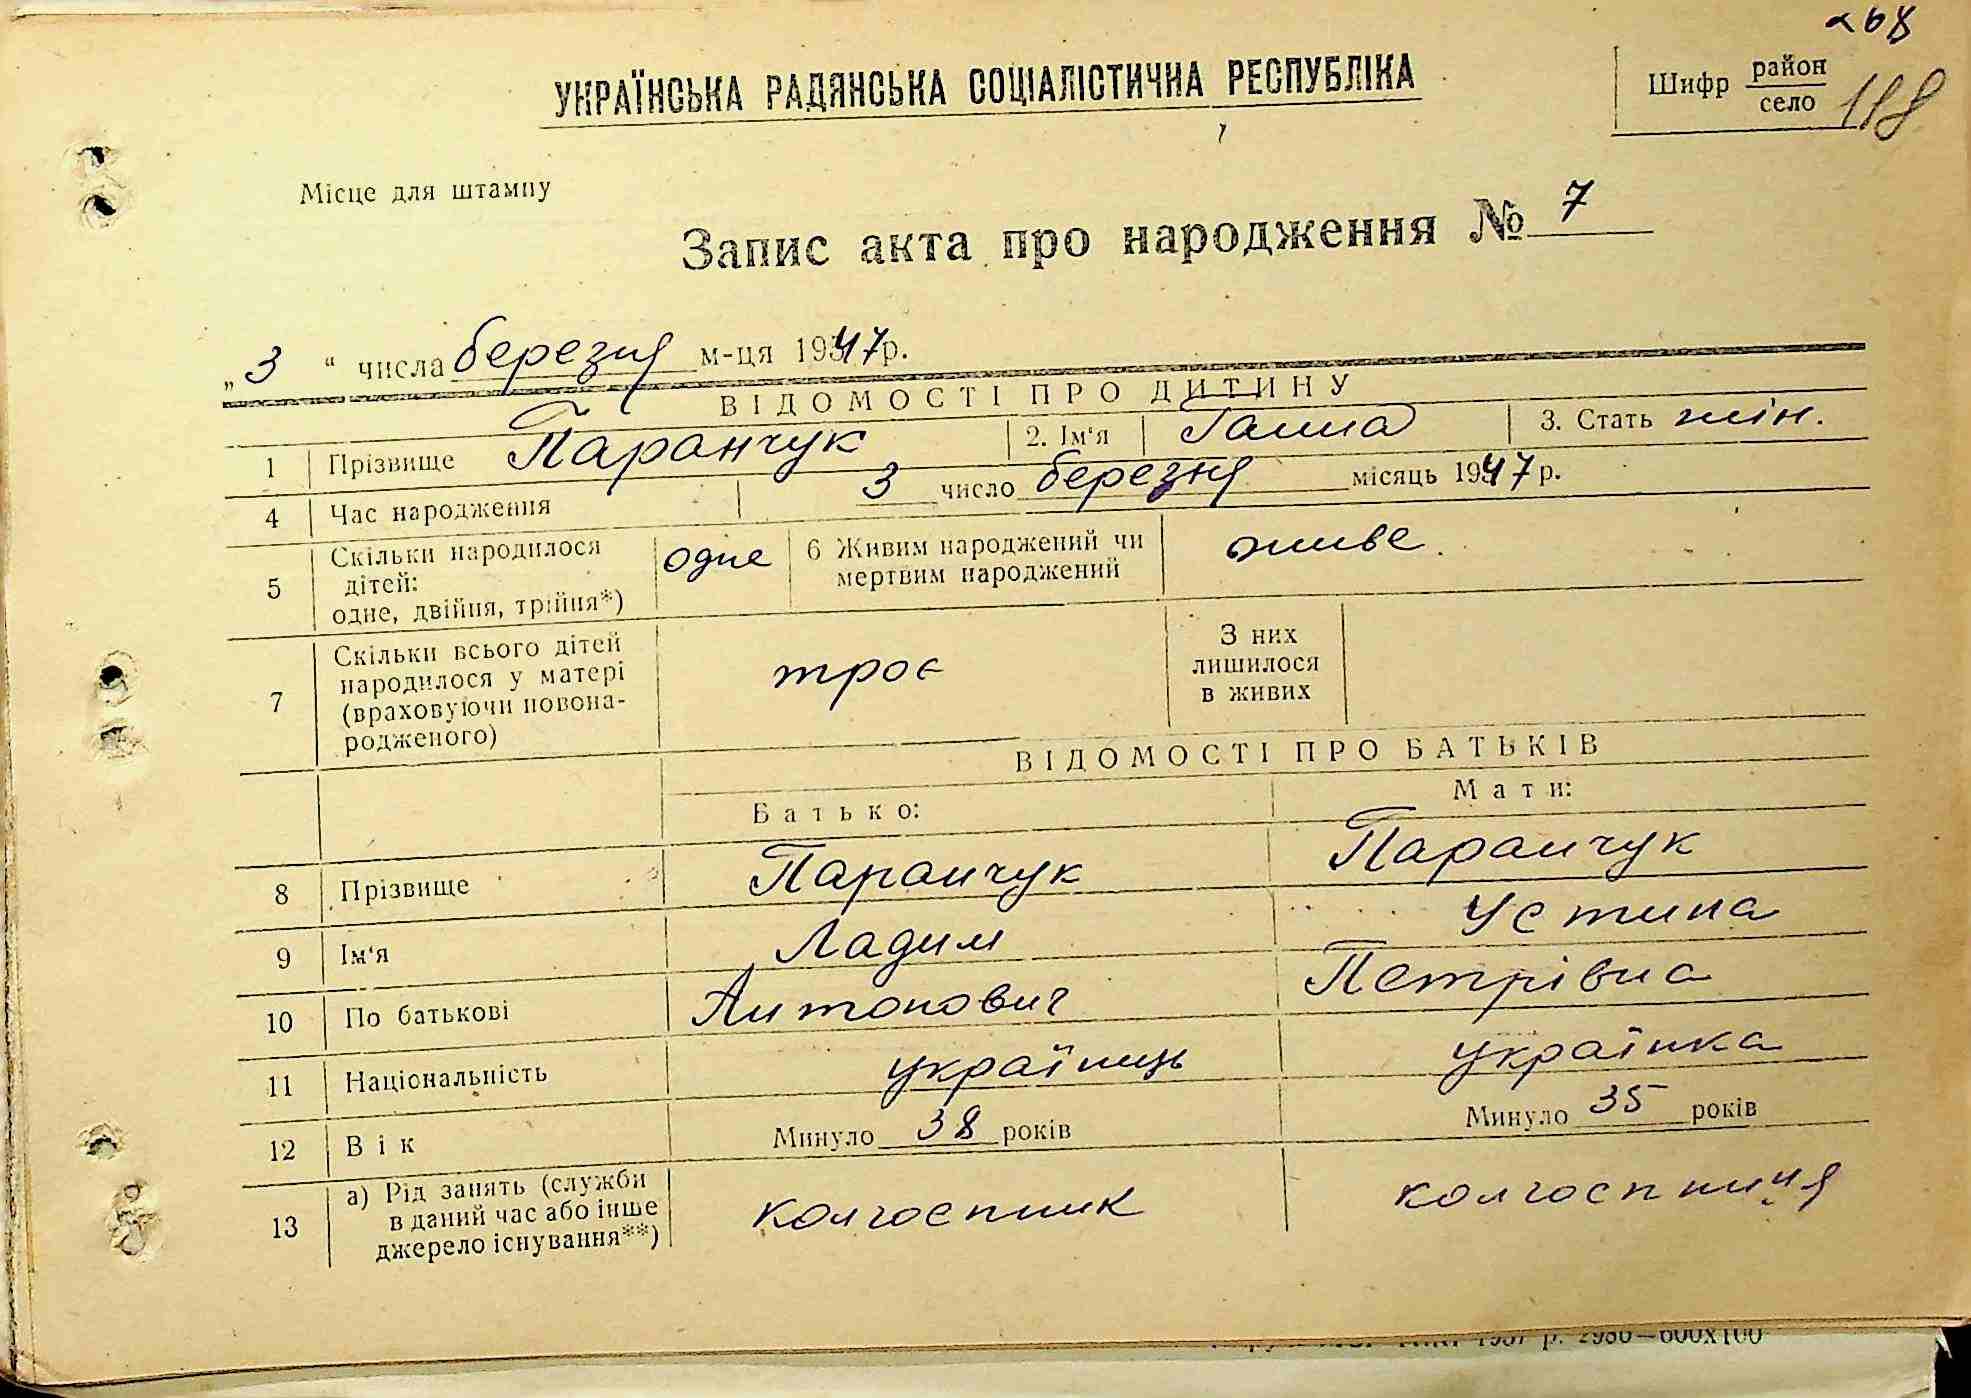 268
УКРАЇНСЬКА РАДЯНСЬКА СОЦІАЛІСТИЧНА РЕСПУБЛІКА
Шифр район
село 118
Місце для штампу
Запис акта про народження № 7
„ 3 “ числа березня м-ця 1947 р.
ВІДОМОСТІ ПРО ДИТИНУ
1 Прізвище Паранчук 2. Ім‘я Ганна 3. Стать жін.
4 Час народження 3 число березня місяць 1947 р.
5 Скільки народилося дітей: одне, двійня, трійня*) одне 6 Живим народжений чи мертвим народжений живе.
7 Скільки всього дітей народилося у матері (враховуючи новона-родженого) троє З них лишилося в живих
ВІДОМОСТІ ПРО БАТЬКІВ
Батько: Мати:
8 Прізвище Паранчук Паранчук
9 Ім‘я Ладим Устина
10 По батькові Антонович Петрівна
11 Національність українець українка
12 Вік Минуло 38 років Минуло 35 років
13 а) Рід занять (служби в даний час або інше джерело існування**) колгоспник колгоспниця
1937 р. 2980—600х100